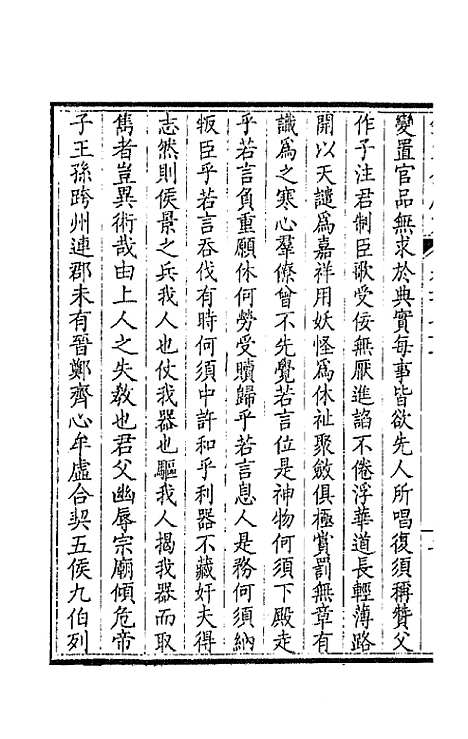 變置官品無求於典實每事皆欲先人所唱復須稱贊父
作子注君制臣歌受佞無厭進諂不倦浮華道長輕薄路
開以天譴爲嘉祥用妖怪爲休祉聚斂俱極賞罰無章有
識爲之寒心羣僚曾不先覺若言位是神物何須下殿走
乎若言負重願休何勞受贖歸乎若言息人是務何須納
叛臣乎若言吞伐有時何須中許和乎利器不藏奸夫得
志然則侯景之兵我人也仗我器也驅我人揭我器而取
雋者豈異術哉由上人之失教也君父幽辱宗廟傾危帝
子王孫跨州連郡未有晉鄭齊心牟虛合契五侯九伯列